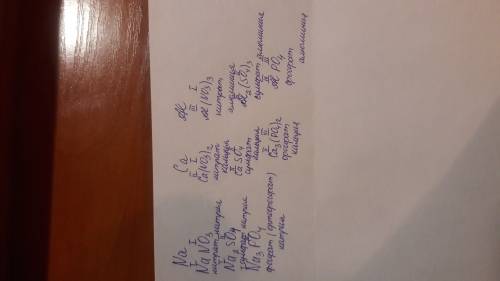 Na
I I
Na NO3
нитрат натрия
I II
Na2 SO4
сульфат натрия
I III
Na3 PO4
фосфат (ортофосфат)
натрия
Ca
II I
Ca(NO3)2
нитрат
кальция
II II
Ca SO4
сульфат
кальция
II III
Ca3(PO4)2
фосфат
кальция
Al
III I
Al(NO3)3
нитрат
алюминия
Al2(SO4)3
сульфат алюминия
III III
Al PO4
фосфат
алюминия